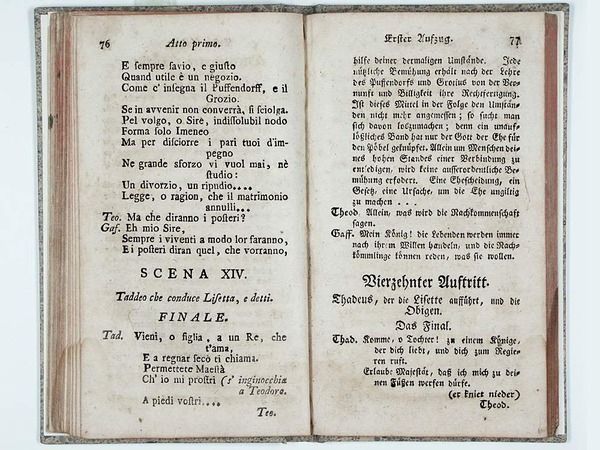 76 Atto primo.
E sempre savio, e giusto
Quand utile è un negozio.
Come c' insegna il Puffendorff, e il
Grozio.
Se in avvenir non converrà, si sciolga.
Pel volgo, o Sire, indissolubil nodo
Forma solo Imeneo
Ma per disciorre i pari tuoi d'im-
pegno
Ne grande sforzo vi vuol mai, nè
studio:
Un divorzio, un ripudio....
Legge, o ragion, che il matrimonio
annulli...
Teo. Ma che diranno i posteri?
Gaf. Eh mio Sire,
Sempre i viventi a modo lor faranno,
E i posteri diran quel, che vorranno,
SCENA XIV.
Taddeo che conduce Lisetta, e detti.
FINALE.
Tad. Vieni, o figlia, a un Re, che
t'ama,
E a regnar seco ti chiama.
Permettete Maestà
Ch' io mi prostri (s' inginocchia
a Teodoro.
A piedi vostri....
Teo.
Erster Aufzug. 77
hilfe deiner dermaligen Umstände. Jede
nützliche Bemühung erhält nach der Lehre
des Puffendorfs und Grotius von der Ver-
nunft und Billigkeit ihre Rechtfertigung.
Ist dieses Mittel in der Folge den Umstän-
den nicht mehr angemessen; so sucht man
sich davon loszumachen; denn ein unauf-
lösliches Band hat nur der Gott der Ehe für
den Pöbel geknüpfet. Allein um Menschen dei-
nes hohen Standes einer Verbindung zu
entledigen, wird keine ausserordentliche Be-
mühung erfodert. Eine Ehescheidung, ein
Gesetz, eine Ursache, um die Ehe ungiltig
zu machen . . .
Theod. Allein, was wird die Nachkommenschaft
sagen.
Gaff. Mein König! die Lebenden werden immer
nach ihrem Willen handeln, und die Nach-
kömmlinge können reden, was sie wollen.
Vierzehnter Auftritt.
Thadeus, der die Lisette aufführt, und die
Obigen.
Das Final.
Thad. Komme, o Tochter! zu einem Könige,
der dich liebt, und dich zum Regie-
ren ruft.
Erlaube Majestät, daß ich mich zu dei-
nen Füßen werfen dürfe.
(er kniet nieder)
Theod.